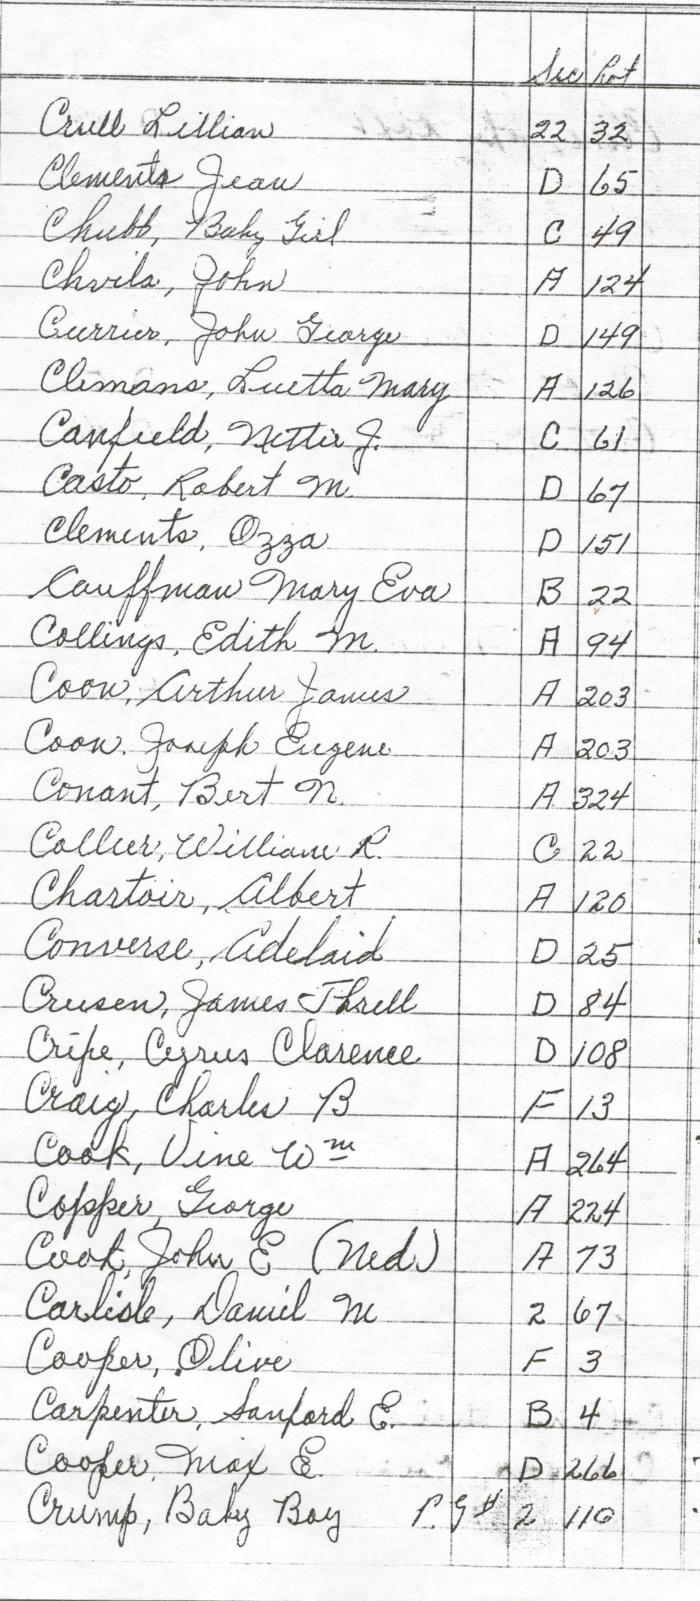 Sec Lot
Crull Lillian 22 32
Clements Jean D 65
Chubb, Baby Girl C 49
Chvila, John A 124
Currier, John George D 149
Clemans, Luetta Mary A 126
Canfield, Nettie J. C 61
Casto, Robert M. D 67
Clements, Ozza D 151
Cauffman Mary Eva B 22
Collings, Edith M. A 94
Coon, Arthur James A 203
Coon. Joseph Eugene A 203
Conant, Bert N. A 324
Collier, William R. C 22
Chartoir, Albert A 120
Converse, Adelaid D 25
Crusen, James Threll D 84
Cripe, Cyrus Clarence D 108
Craig, Charles B F 13
Cook, Vine Wm A 264
Copper, George A 224
Cook, John E (Ned) A 73
Carlisle, Daniel M 2 67
Cooper, Olive F 3
Carpenter, Sanford E. B 4
Cooper, Max E. D 266
Crump, Baby Boy P.G# 2 110